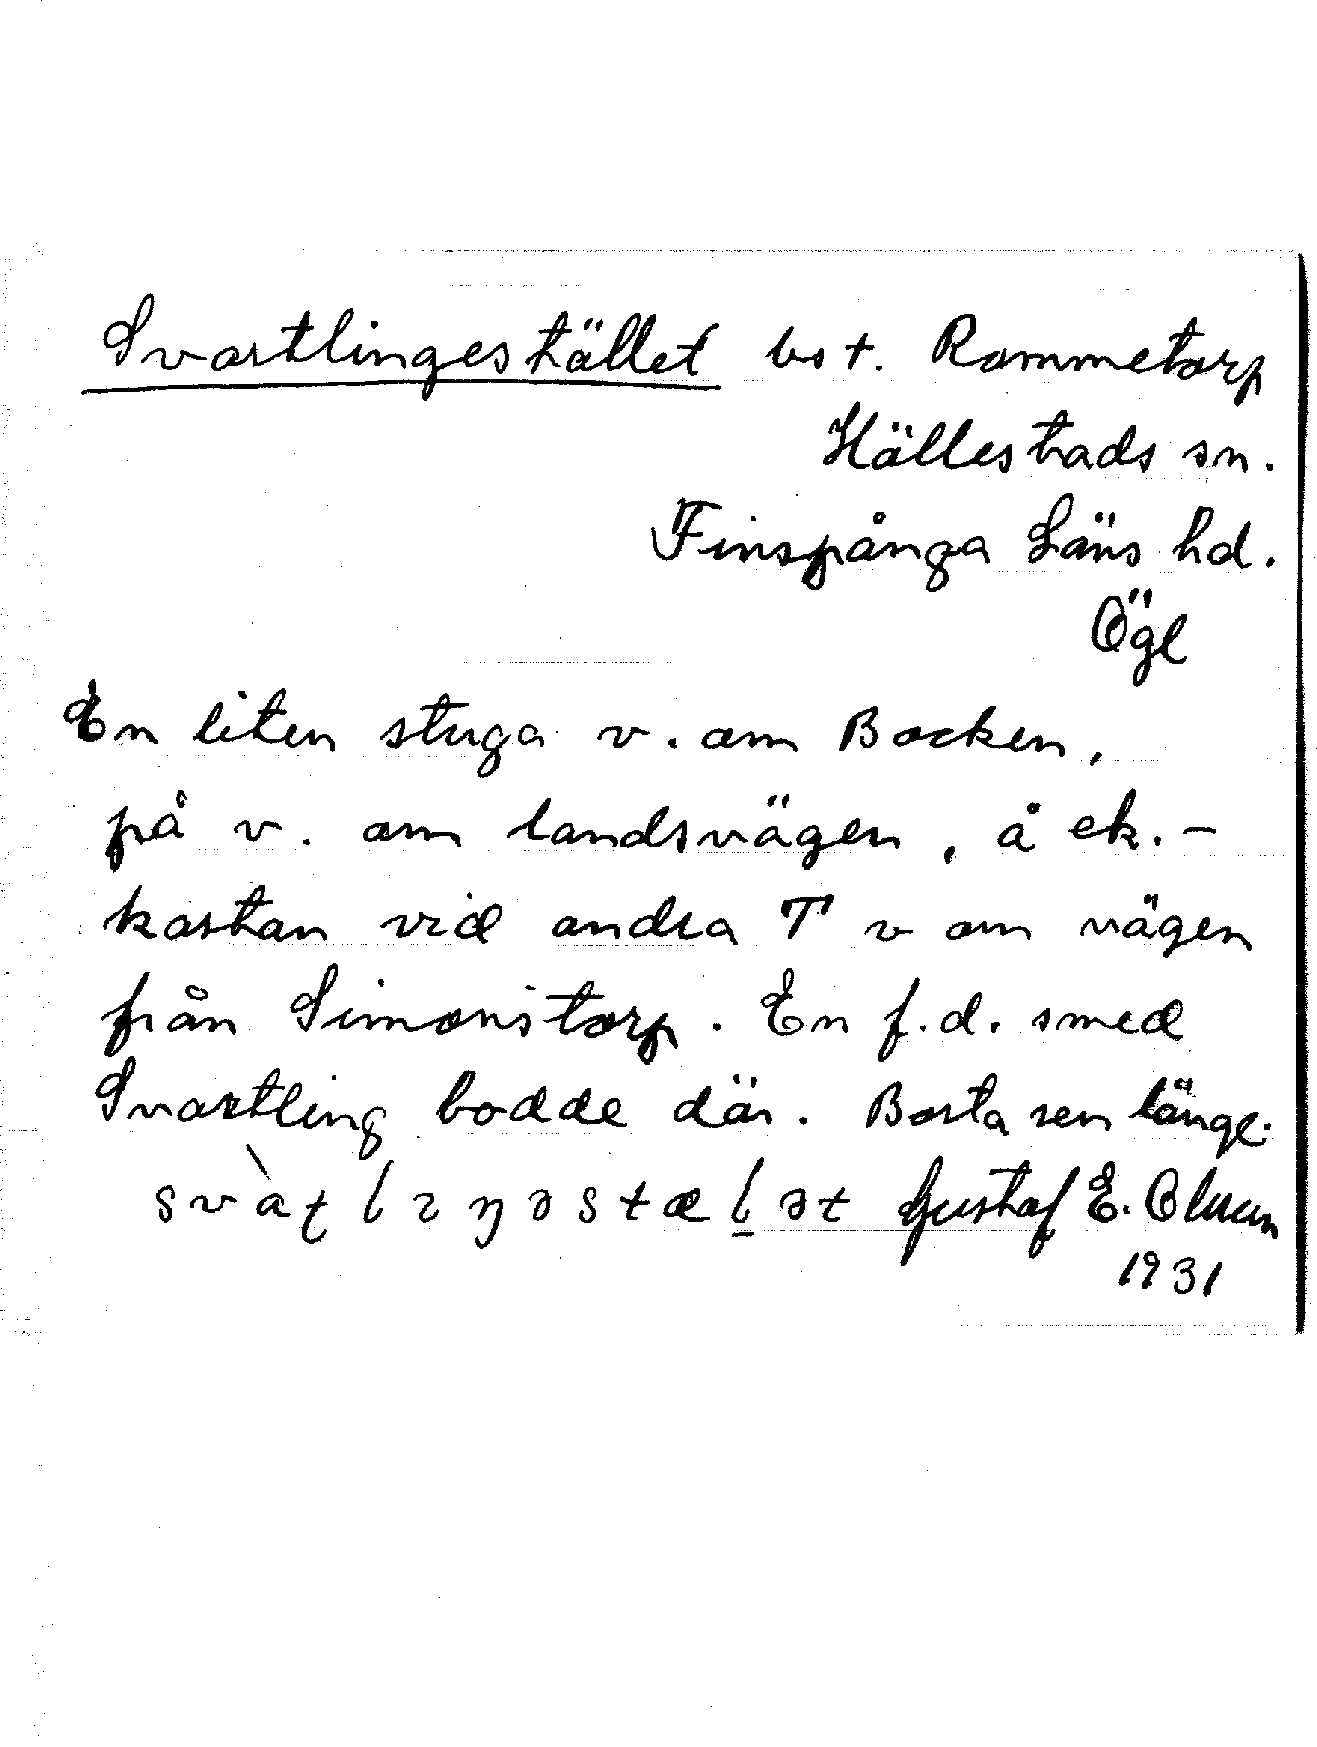 Svartlingestället bs t. Rommetorp
Hällestads sn.
Finspånga Läns hd.
Ögl
En liten stuga v. om Bocken,
på v. om landsvägen, å ek.-
kartan vid andra T v om vägen
från Simonstorp. En f.d. smed
Svartling bodde där. Borta sen länge.
svàʈlɪŋəstælət Gustaf E.
1931